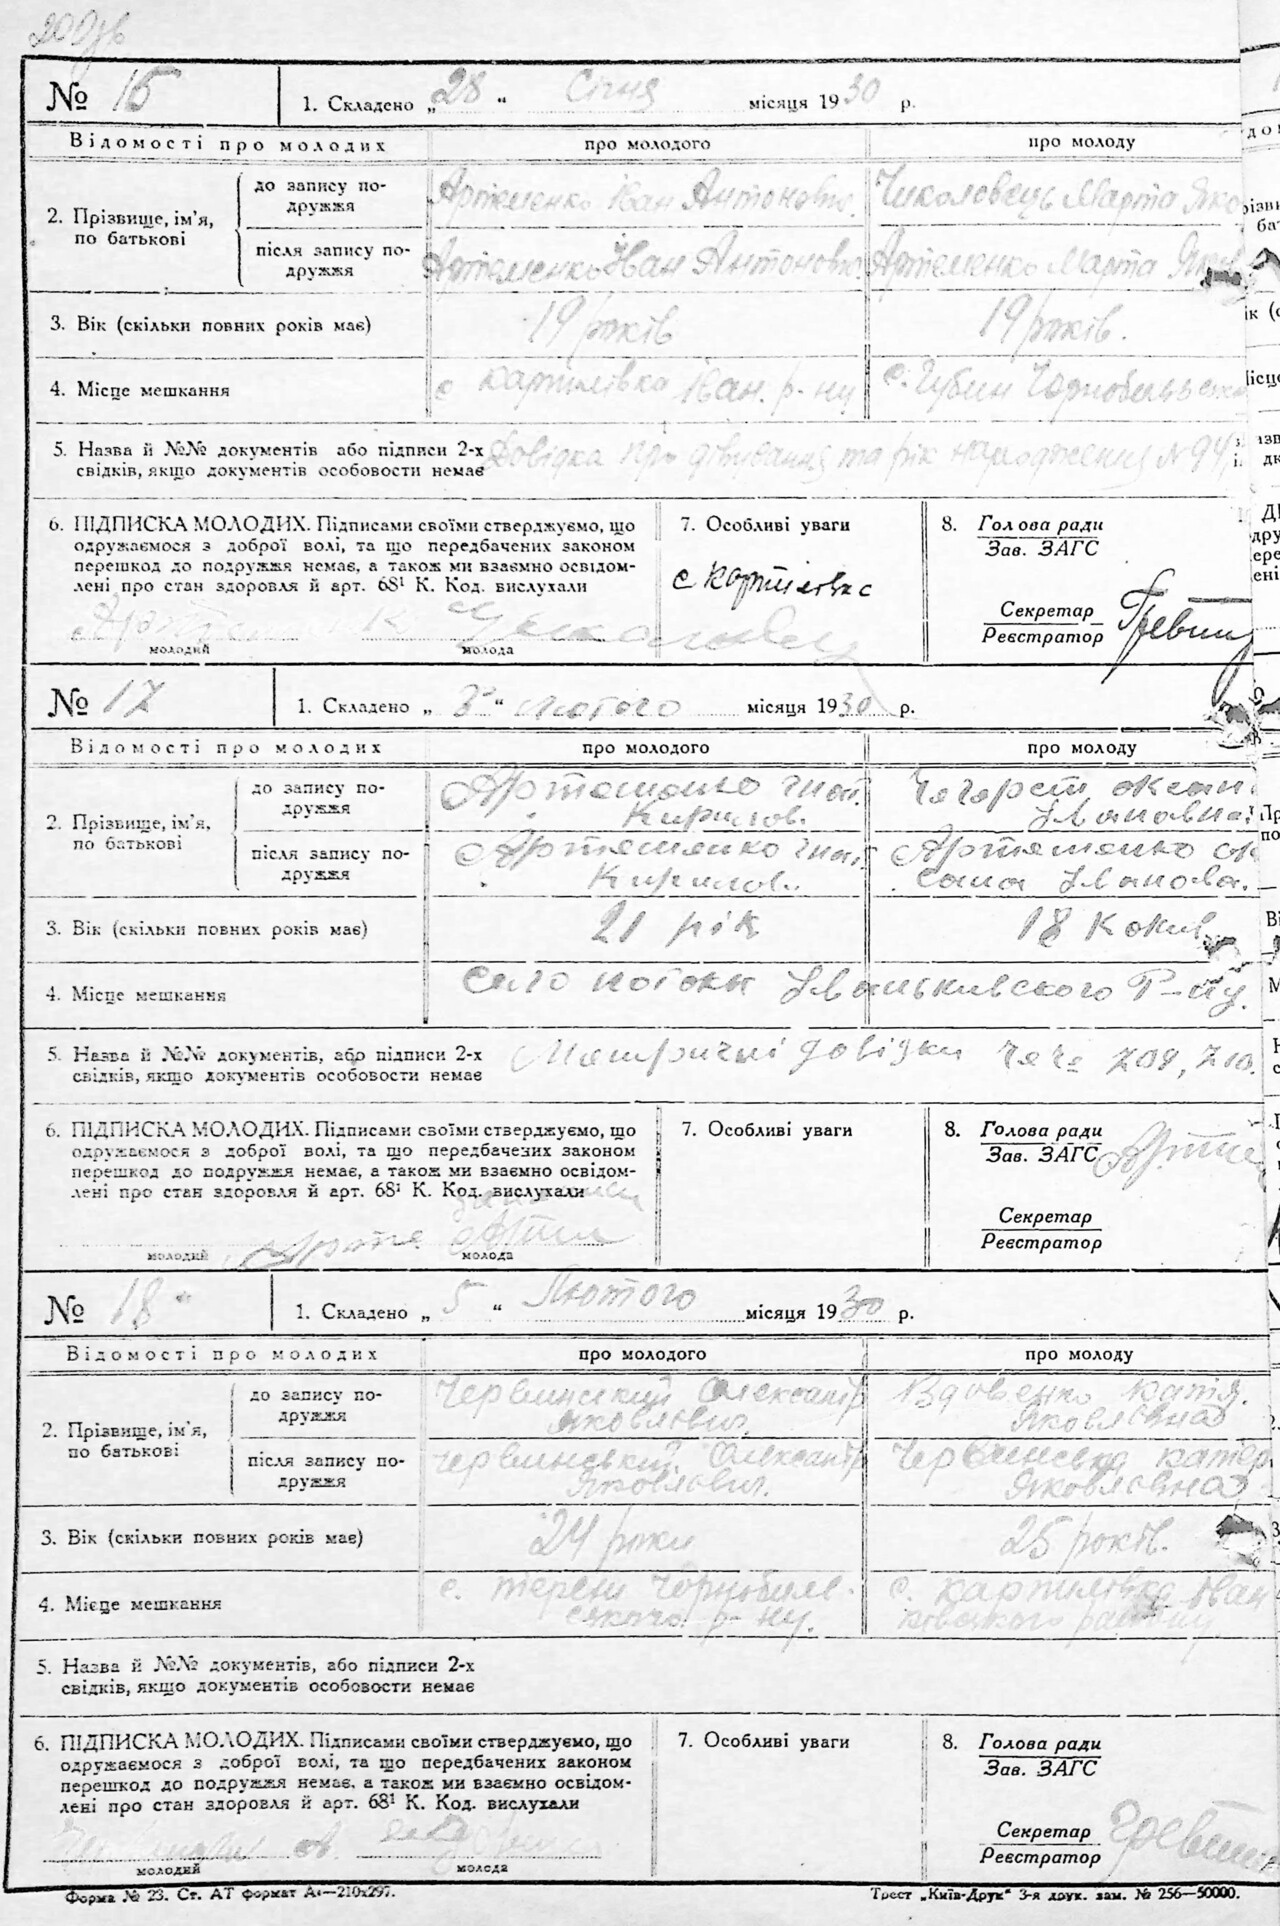 200зв
№ 16 1. Складено „ 28 “ Січня місяця 1930 р.
Відомості про молодих про молодого про молоду
2. Прізвище, ім'я, по батькові
до запису по-
дружжя
Артеменко Іван Антонович. Чиколовець Марта Яко
після запису по-
дружжя
Артеменко Іван Антонович. Артеменко Марта Яков
3. Вік (скільки повних років має) 19 років 19 років.
4. Місце мешкання с Карпилівка Іван. р-ну с. Губин Чорнобельськ
5. Назва й №№ документів або підписи 2-х
свідків, якщо документів особовости немає
Довідка про дівування та рік народження №94,
6. ПІДПИСКА МОЛОДИХ. Підписами своїми стверджуємо, що
одружаємося з доброї волі, та що передбачених законом
перешкод до подружжя немає, а також ми взаємно освідом-
лені про стан здоров'я й арт. 68¹ К. Код. вислухали
молодий молода
7. Особливі уваги
с Карпилівка
8. Голова ради
Зав. ЗАГС
Секретар
Реєстратор
№ 17 1. Складено „ 3 “ лютого місяця 1930 р.
Відомості про молодих про молодого про молоду
2. Прізвище, ім'я, по батькові
до запису по-
дружжя
Артеменко Гнат.
Кирилов.
Оксан
Івановна
після запису по-
дружжя
Артеменко Гнат
Кирилов.
Артеменко Ок
сана Іванова.
3. Вік (скільки повних років має) 21 рік 18
4. Місце мешкання село Потоки Іваньківського Р-ну.
5. Назва й №№ документів, або підписи 2-х
свідків, якщо документів особовости немає
Метричні довідки №№ 709, 710.
6. ПІДПИСКА МОЛОДИХ. Підписами своїми стверджуємо, що
одружаємося з доброї волі, та що передбачених законом
перешкод до подружжя немає, а також ми взаємно освідом-
лені про стан здоровля й арт. 68¹ К. Код. вислухали
молодий молода
7. Особливі уваги
8. Голова ради
Зав. ЗАГС
Секретар
Реєстратор
№ 18 1. Складено „ 5 “ Лютого місяця 1930 р.
Відомості про молодих про молодого про молоду
2. Прізвище, ім'я, по батькові
до запису по-
дружжя
Червинский Олександр
Яковлович.
Вдовенко Катя.
Яковлівна
після запису по-
дружжя
Червинський Олександр
Яковлович.
Червинська Катер
Яковлівна
3. Вік (скільки повних років має) 24 роки 25 років.
4. Місце мешкання
с. Терени Чорнобиль-
ського. р-ну.
с. Карпилівка Іван
ківського району.
5. Назва й №№ документів, або підписи 2-х
свідків, якщо документів особовости немає
6. ПІДПИСКА МОЛОДИХ. Підписами своїми стверджуємо, що
одружаємося з доброї волі, та що передбачених законом
перешкод до подружжя немає, а також ми взаємно освідом-
лені про стан здоровля й арт. 68¹ К. Код. вислухали
молодий молода
7. Особливі уваги
8. Голова ради
Зав. ЗАГС
Секретар
Реєстратор
Форма № 23. Ст. АТ формат А₄—210х297. Трест „Київ-Друк“ 3-я друк. зам. № 256—50000.